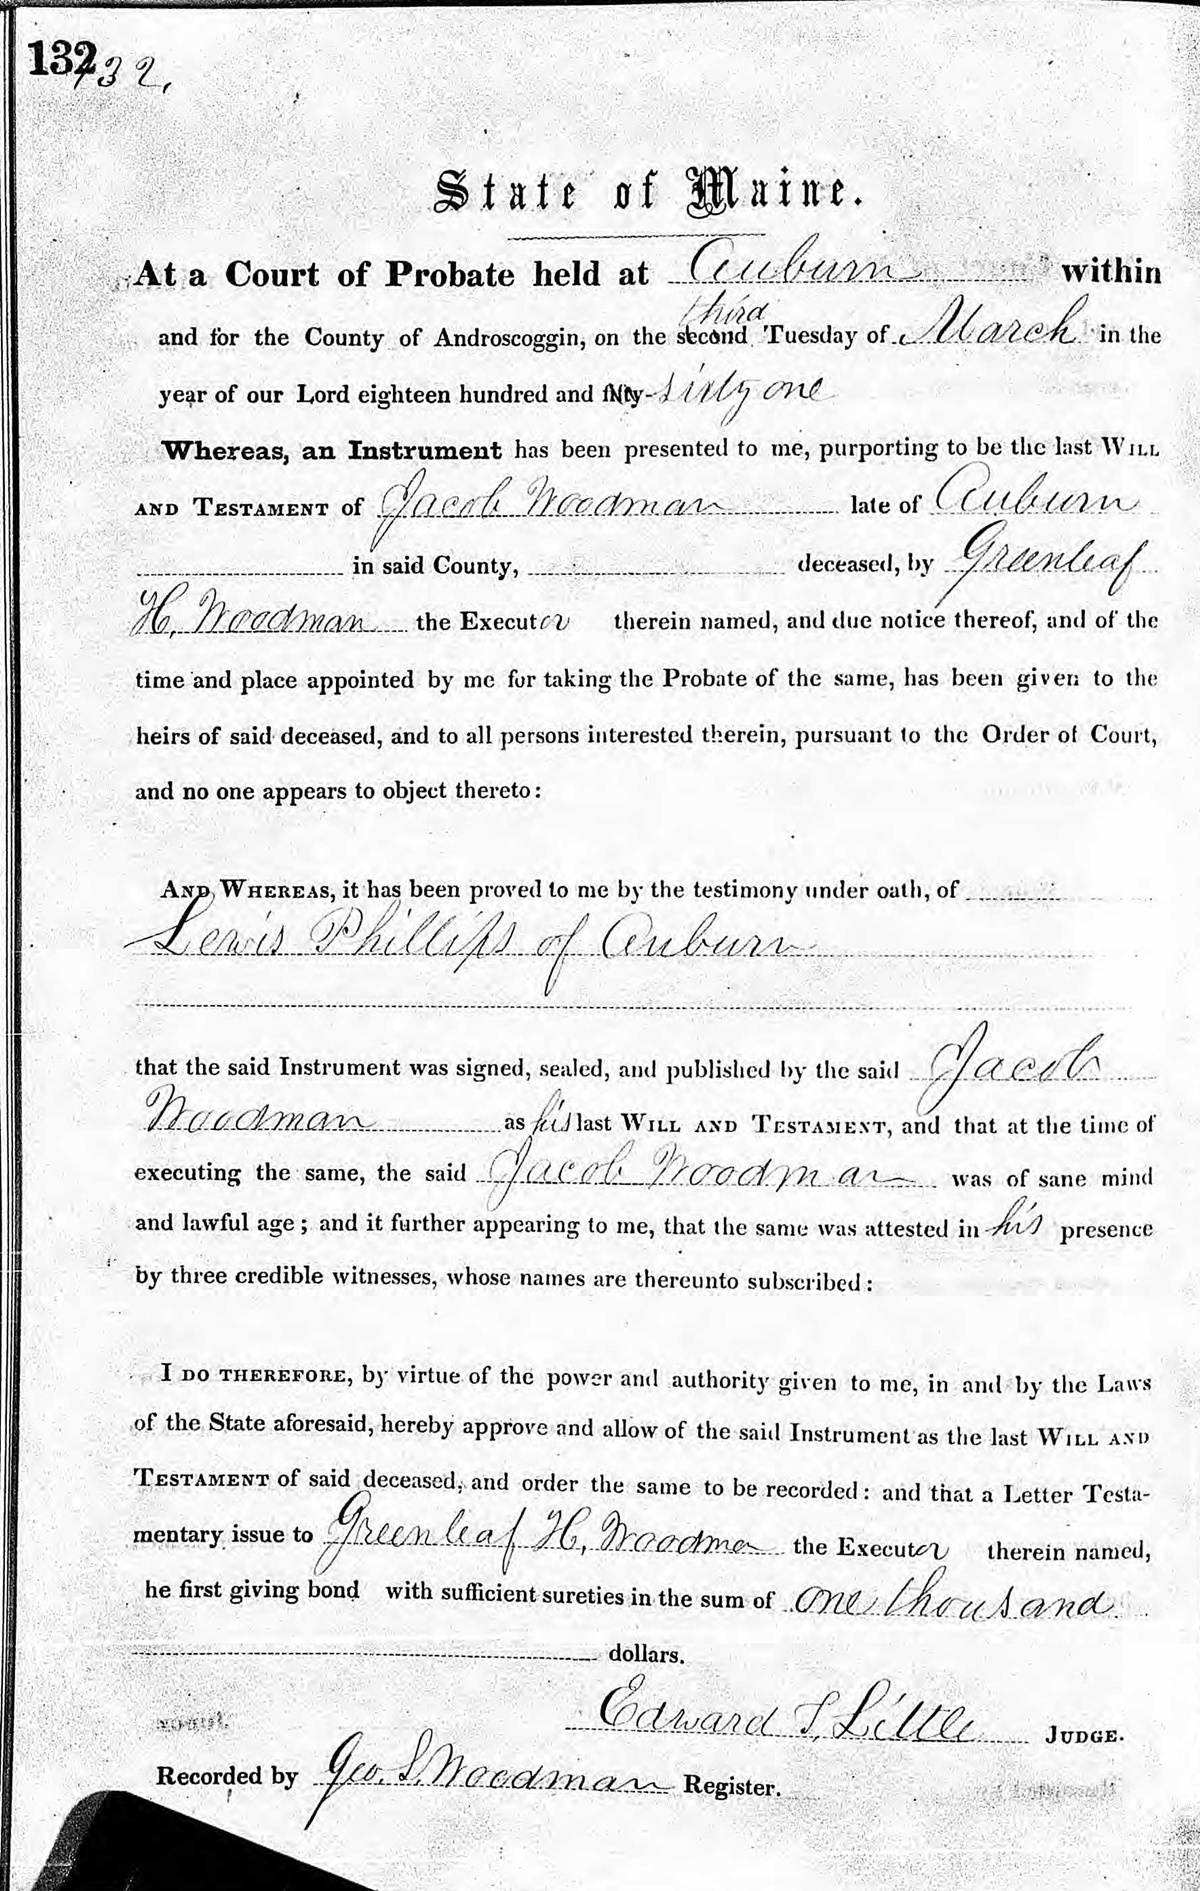 132 132,
State of Maine.
At a Court of Probate held at Auburn within
third
and for the County of Androscoggin, on the second Tuesday of March in the
year of our Lord eighteen hundred and fifty-sixty one
Whereas, an Instrument has been presented to me, purporting to be the last WILL
AND TESTAMENT of Jacob Woodman late of Auburn
in said County, deceased, by Greenleaf
H. Woodman the Executor therein named, and due notice thereof, and of the
time and place appointed by me for taking the Probate of the same, has been given to the
heirs of said deceased, and to all persons interested therein, pursuant to the Order of Court,
and no one appears to object thereto:
AND WHEREAS, it has been proved to me by the testimony under oath, of
Lewis Phillips of Auburn
that the said Instrument was signed, sealed, and published by the said Jacob
Woodman as his last WILL AND TESTAMENT, and that at the time of
executing the same, the said Jacob Woodman was of sane mind
and lawful age; and it further appearing to me, that the same was attested in his presence
by three credible witnesses, whose names are thereunto subscribed:
I DO THEREFORE, by virtue of the power and authority given to me, in and by the Laws
of the State aforesaid, hereby approve and allow of the said Instrument as the last WILL AND
TESTAMENT of said deceased, and order the same to be recorded: and that a Letter Testa-
mentary issue to Greenleaf H. Woodman the Executor therein named,
he first giving bond with sufficient sureties in the sum of one thousand
dollars.
Edward T. Little JUDGE.
Recorded by Geo. S. Woodman Register.